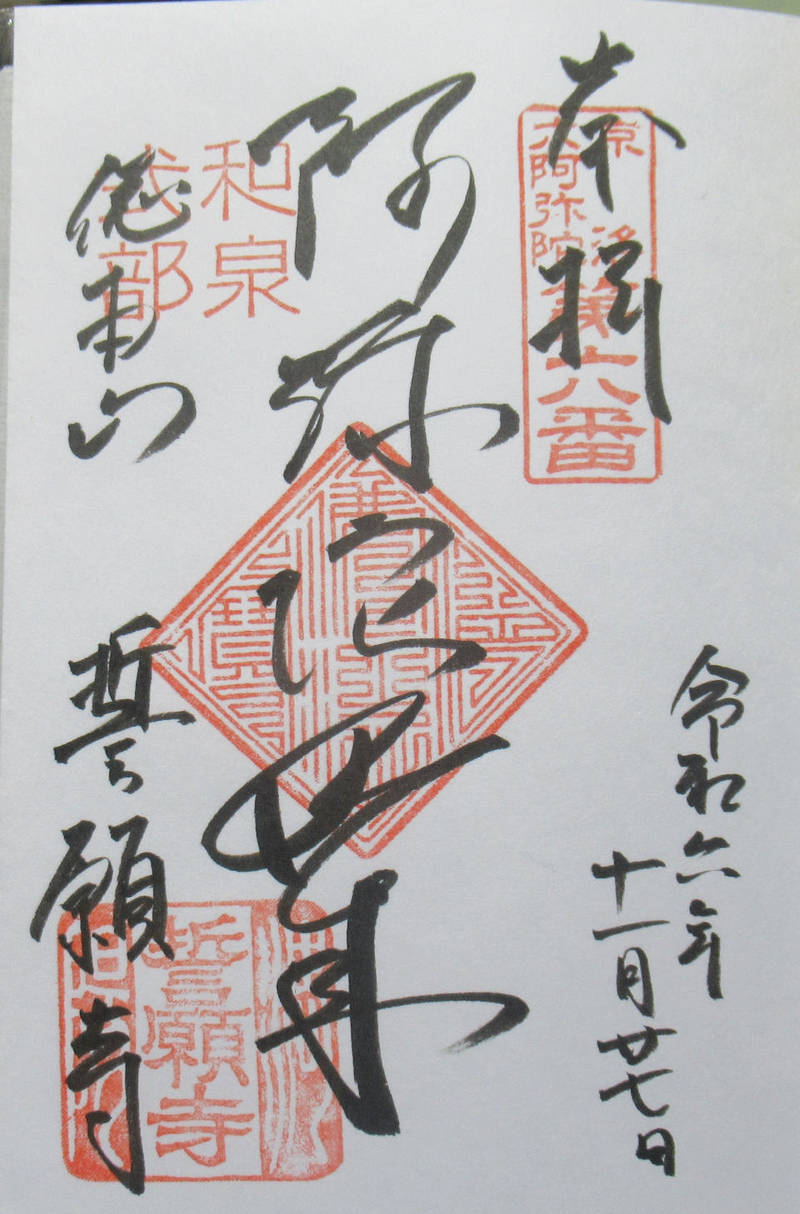 奉拝
六阿弥陀
第六番
令和六年
十一月廿七日
阿弥陀如来
和泉
式部
総本山
誓願寺
誓願寺